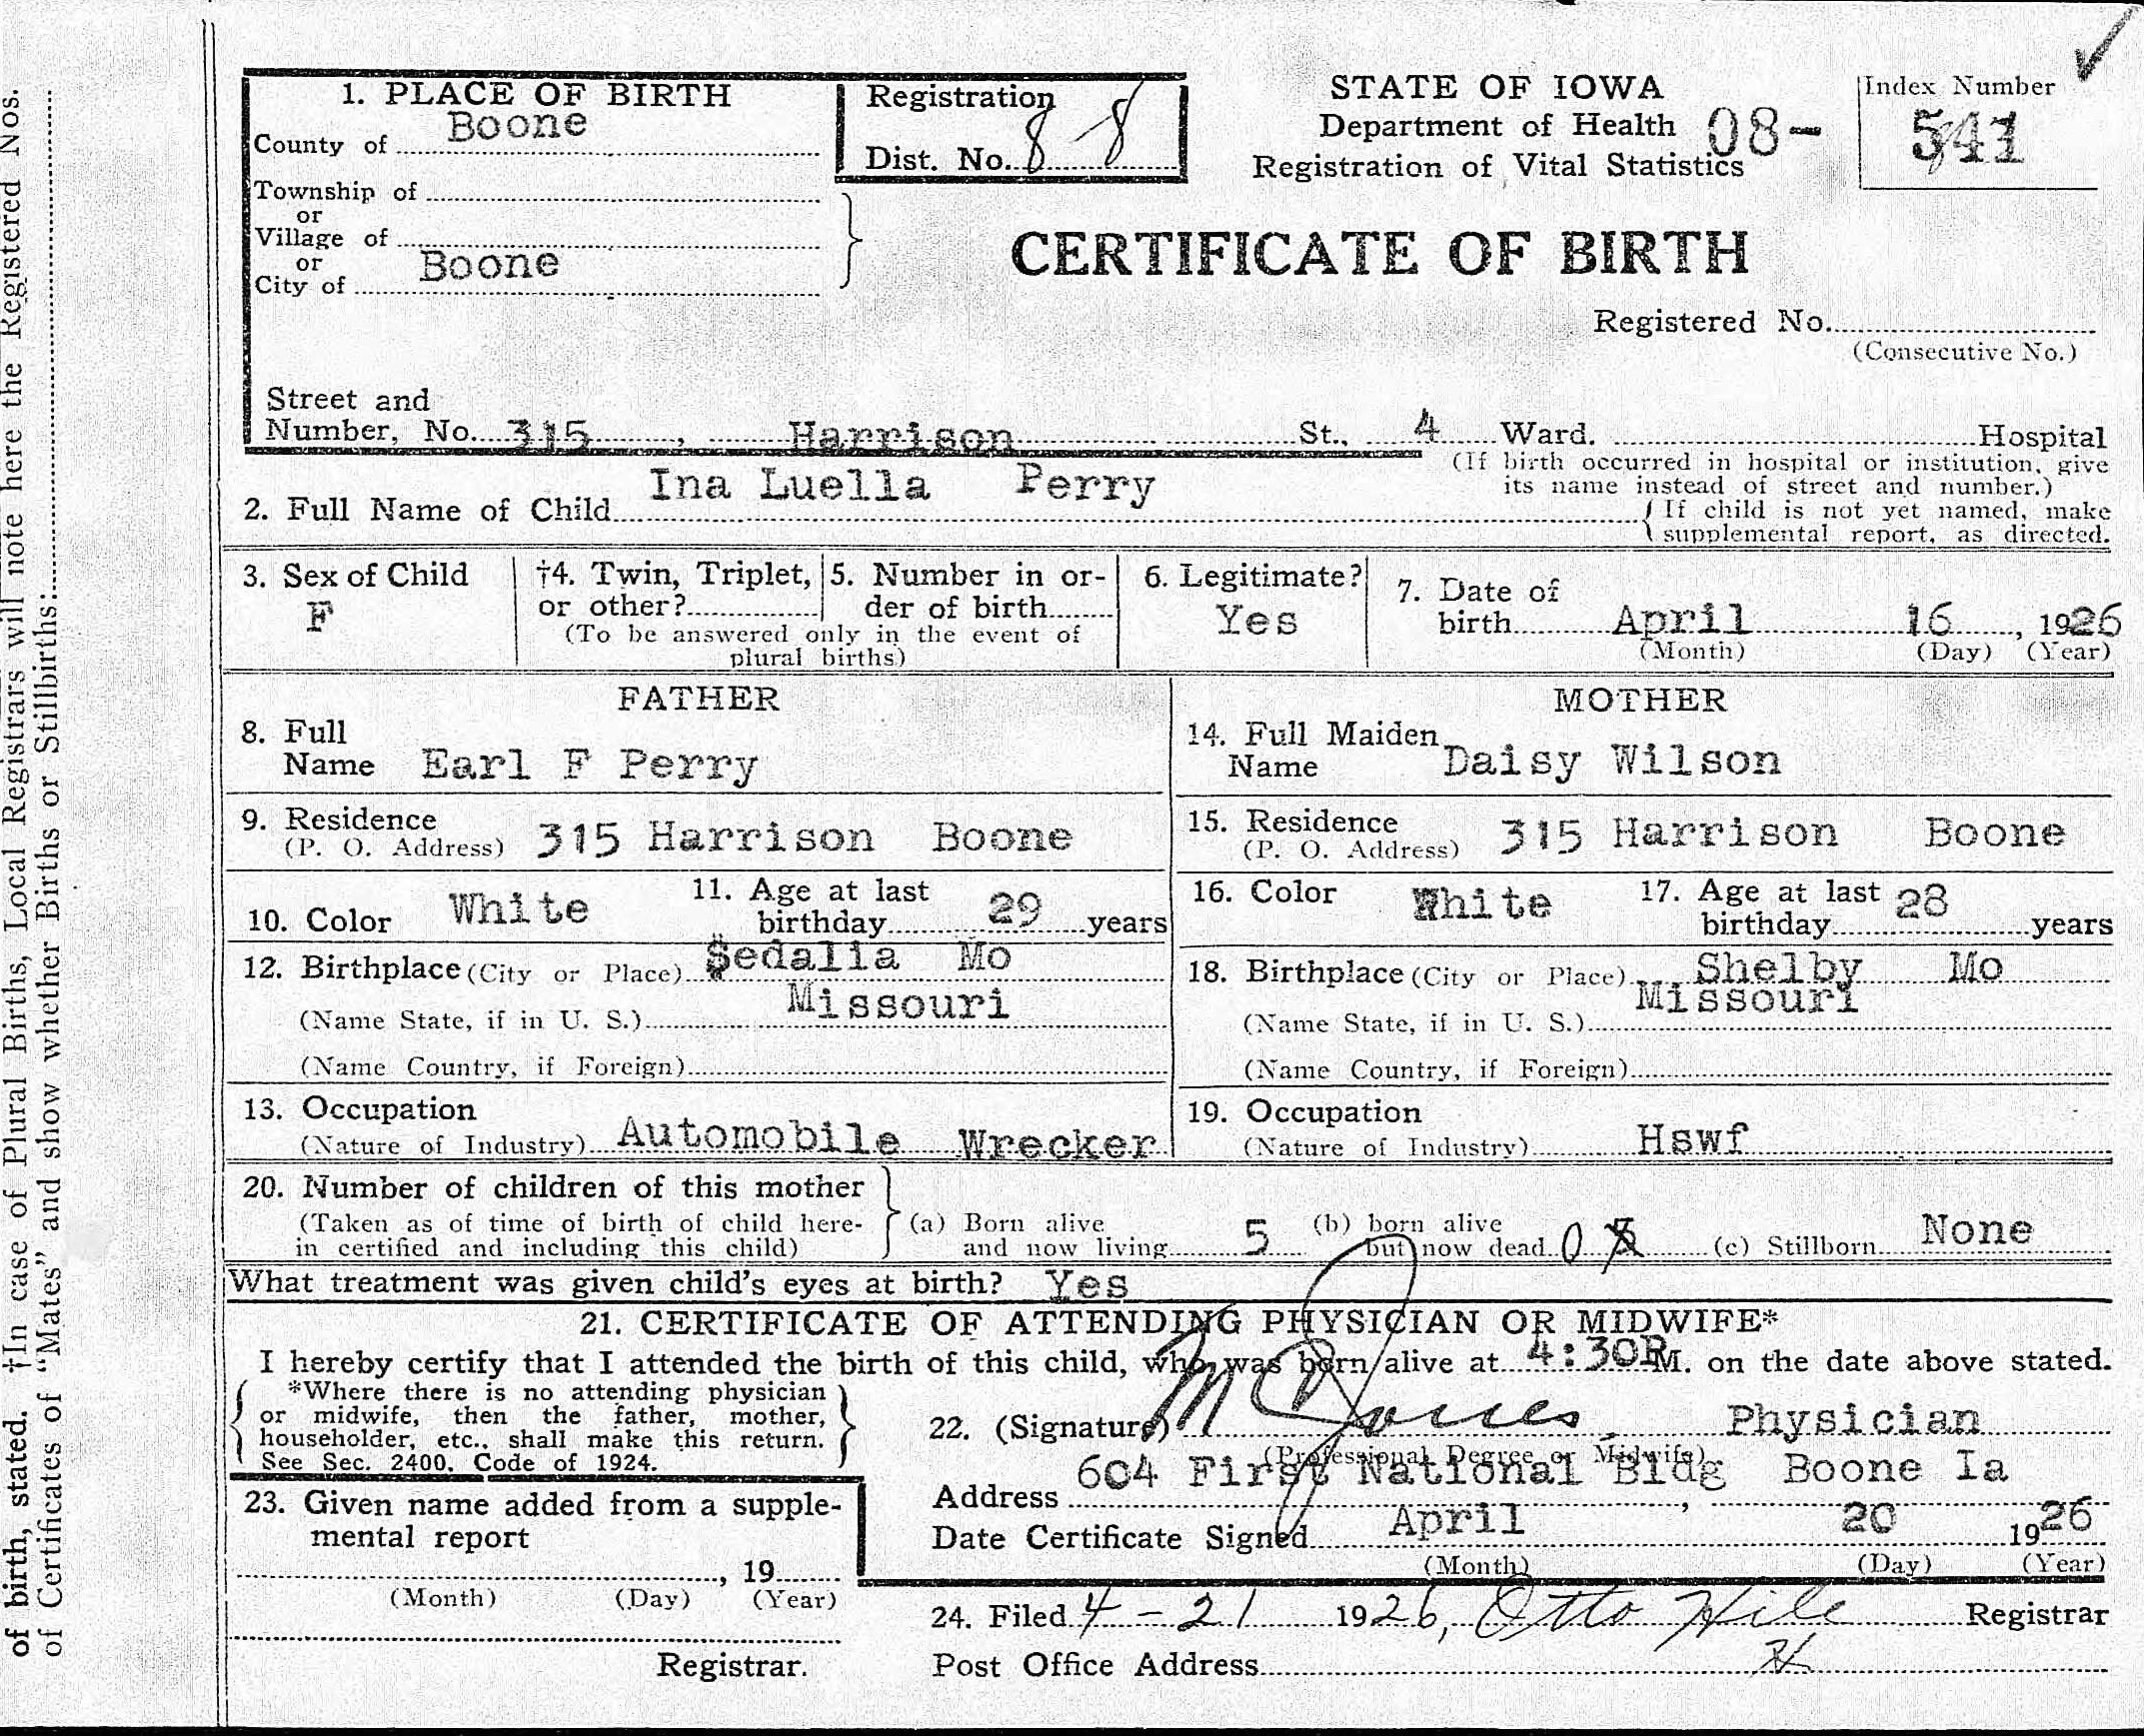 of birth, stated. †In case of Plural Births, Local Registrars will note here the Registered Nos.
of Certificates of "Mates" and show whether Births or Stillbirths:
1. PLACE OF BIRTH
County of Boone
Township of
or
Village of
or
City of Boone
Registration
Dist. No. 8 8
STATE OF IOWA
Department of Health
Registration of Vital Statistics
08-
Index Number
541
CERTIFICATE OF BIRTH
Registered No.
(Consecutive No.)
Street and
Number, No. 315, Harrison St., 4 Ward. Hospital
(If birth occurred in hospital or institution, give
its name instead of street and number.)
2. Full Name of Child Ina Luella Perry
{ If child is not yet named, make
supplemental report, as directed.
3. Sex of Child
F
†4. Twin, Triplet,
or other?
5. Number in or-
der of birth
(To be answered only in the event of
plural births)
6. Legitimate?
Yes
7. Date of
birth April 16, 1926
(Month) (Day) (Year)
FATHER
8. Full
Name Earl F Perry
9. Residence
(P. O. Address) 315 Harrison Boone
10. Color White
11. Age at last
birthday 29 years
12. Birthplace (City or Place) Sedalia Mo
(Name State, if in U. S.) Missouri
(Name Country, if Foreign)
13. Occupation
(Nature of Industry) Automobile Wrecker
MOTHER
14. Full Maiden
Name Daisy Wilson
15. Residence
(P. O. Address) 315 Harrison Boone
16. Color White
17. Age at last
birthday 28 years
18. Birthplace (City or Place) Shelby Mo
(Name State, if in U. S.) Missouri
(Name Country, if Foreign)
19. Occupation
(Nature of Industry) Hswf
20. Number of children of this mother
(Taken as of time of birth of child here-
in certified and including this child)
(a) Born alive
and now living 5
(b) born alive
but now dead 0
(c) Stillborn None
What treatment was given child's eyes at birth? Yes
21. CERTIFICATE OF ATTENDING PHYSICIAN OR MIDWIFE*
I hereby certify that I attended the birth of this child, who was born alive at 4:30P M. on the date above stated.
*Where there is no attending physician
or midwife, then the father, mother,
householder, etc., shall make this return.
See Sec. 2400, Code of 1924.
22. (Signature) Jones Physician
(Professional Degree or Midwife)
Address 604 First National Bldg, Boone Ia
Date Certificate Signed April 20 1926
(Month) (Day) (Year)
23. Given name added from a supple-
mental report
, 19
(Month) (Day) (Year)
Registrar.
24. Filed 4-21 1926, Otto Hile Registrar
Post Office Address